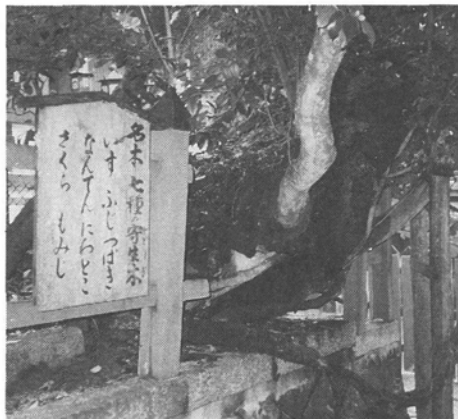 名木 七種の寄生木
いす ふじ つばき
なんてん にわとこ
さくら もみじ